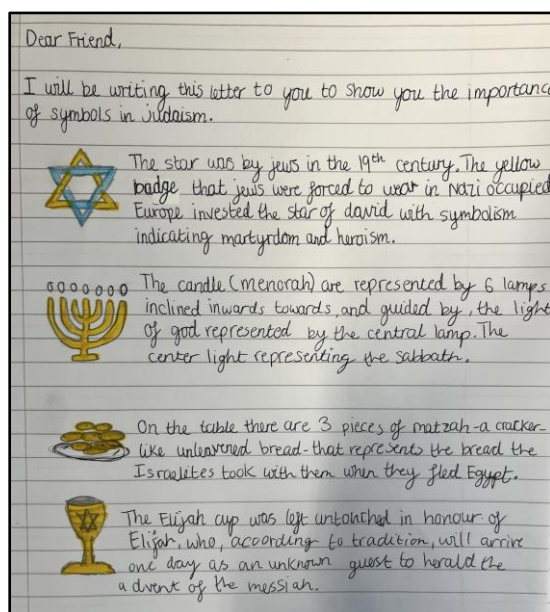 Dear Friend,
I will be writing this letter to you to show you the importance
of symbols in judaism.
The star was by jews in the 19th century. The yellow
badge that jews were forced to wear in Nazi occupied
Europe invested the star of david with symbolism
indicating martyrdom and heroism.
The candle (menorah) are represented by 6 lamps
inclined inwards towards, and guided by, the light
of god represented by the central lamp. The
center light representing the sabbath.
On the table there are 3 pieces of matzah-a cracker-
like unleavened bread-that represents the bread the
Israeletes took with them when they fled Egypt.
The Elijah cup was left untouched in honour of
Elijah, who, according to tradition, will arrive
one day as an unknown guest to herald the
advent of the messiah.